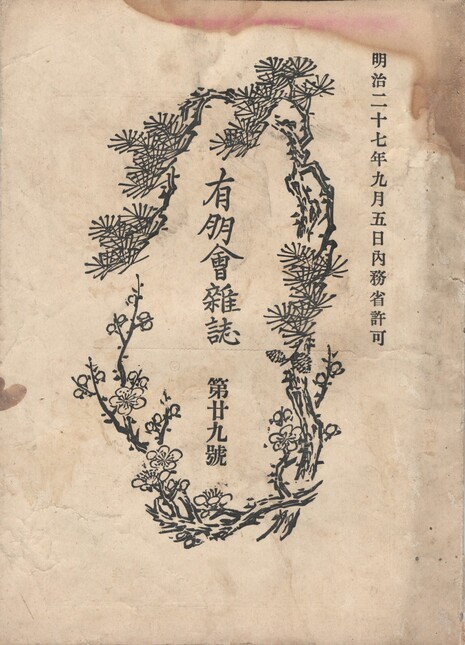 明治二十七年九月五日內務省許可
有朋會雜誌
第廿九號